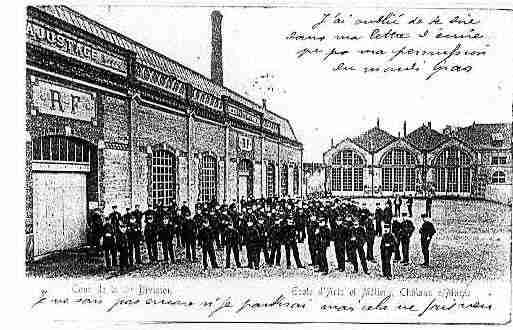 J'ai oublié de te dire
dans ma lettre d'écrire
ma permission
du mardi gras
AJUSTAGE
R F
Cour de la Division. École d'Arts et Métiers, Châlons s/Marne
Je ne sais pas encore si je partirai, mais cela ne fait rien